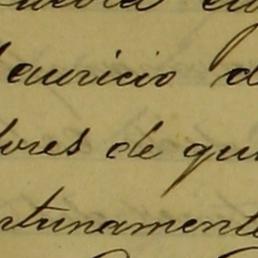 auricio d
lores de qui
rtunamente